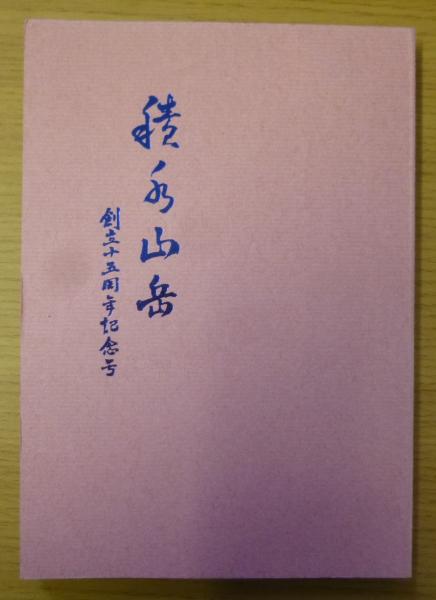 積水山岳
創立十五周年記念号